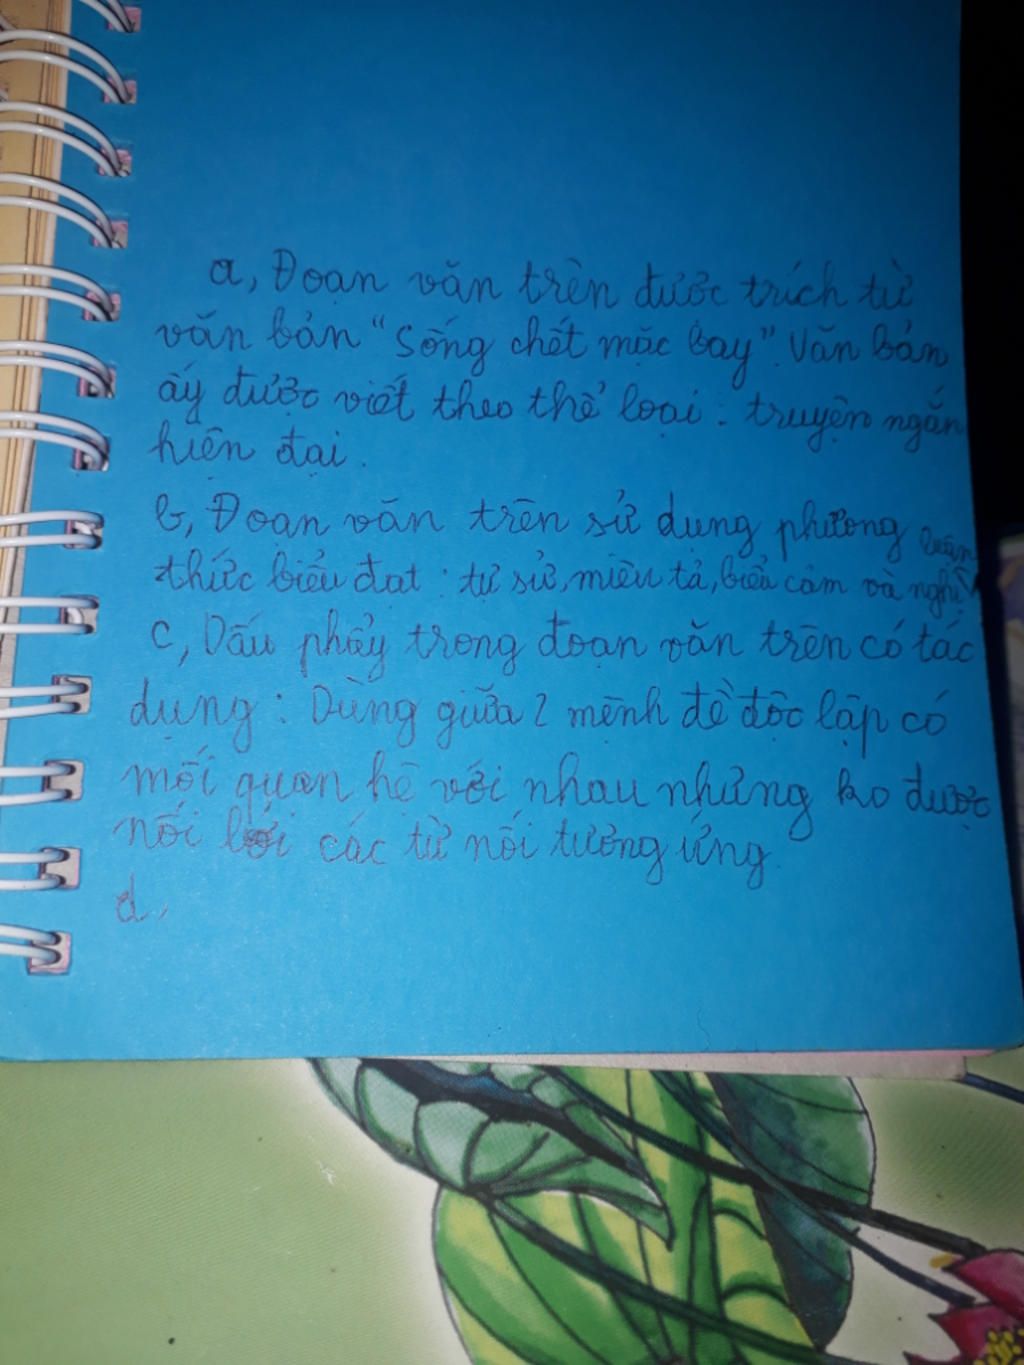 a, Đoạn văn trên được trích từ
văn bản "Sống chết mặc bay". Văn bản
ấy được viết theo thể loại: truyện ngắn
hiện đại.
b, Đoạn văn trên sử dụng phương
thức biểu đạt: tự sự, miêu tả, biểu cảm và nghị luận
c, Dấu phẩy trong đoạn văn trên có tác
dụng: Dùng giữa 2 mệnh đề độc lập có
mối quan hệ với nhau nhưng ko được
nối bởi các từ nối tương ứng.
d,